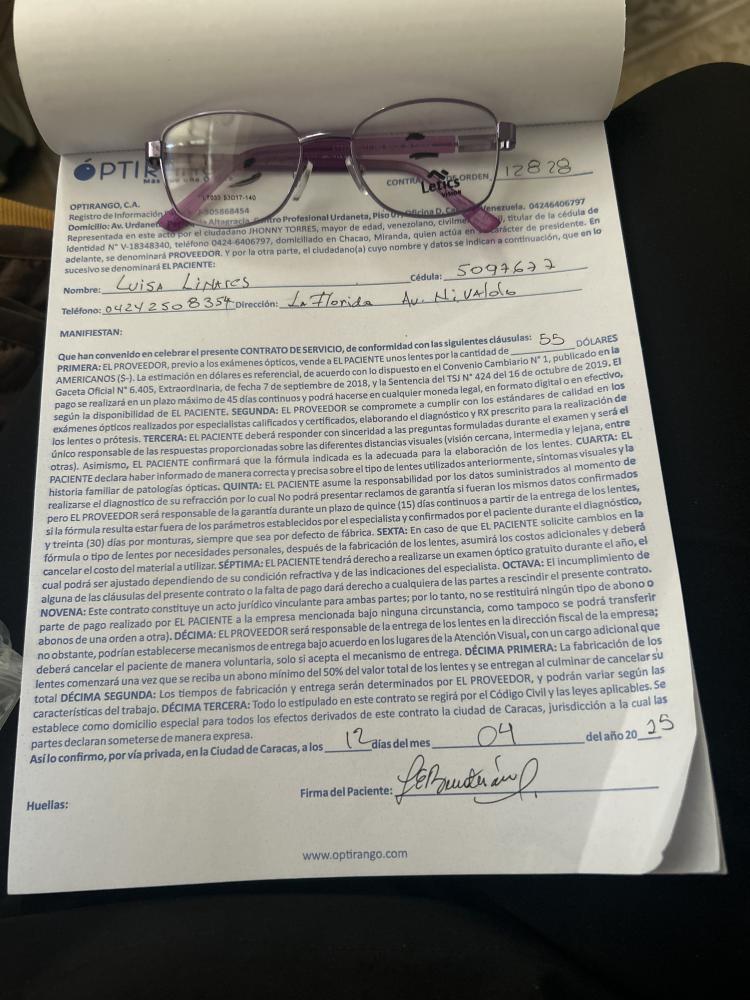 ÓPTIR
CONTRA DE ORDEN 12828
Letics
Vision
LT033 53017-140
OPTIRANGO, C.A.
Registro de Información 505868454
Domicilio: Av. Urdaneta Altagracia, Centro Profesional Urdaneta, Piso Oficina D, Venezuela. 04246406797
Representada en este acto por el ciudadano JHONNY TORRES, mayor de edad, venezolano, civilmente titular de la cédula de
identidad N° V-18348340, teléfono 0424-6406797, domiciliado en Chacao, Miranda, quien actúa en carácter de presidente. En
adelante, se denominará PROVEEDOR. Y por la otra parte, el ciudadano(a) cuyo nombre y datos se indican a continuación, que en lo
sucesivo se denominará EL PACIENTE:
Nombre: LUISA LINARES Cédula: 5097677
Teléfono: 04242508354 Dirección: La Florida Av. Nivaldo
MANIFIESTAN:
Que han convenido en celebrar el presente CONTRATO DE SERVICIO, de conformidad con las siguientes cláusulas:
PRIMERA: EL PROVEEDOR, previo a los exámenes ópticos, vende a EL PACIENTE unos lentes por la cantidad de 55 DÓLARES
AMERICANOS ($-). La estimación en dólares es referencial, de acuerdo con lo dispuesto en el Convenio Cambiario N° 1, publicado en la
Gaceta Oficial N° 6.405, Extraordinaria, de fecha 7 de septiembre de 2018, y la Sentencia del TSJ N° 424 del 16 de octubre de 2019. El
pago se realizará en un plazo máximo de 45 días continuos y podrá hacerse en cualquier moneda legal, en formato digital o en efectivo,
según la disponibilidad de EL PACIENTE. SEGUNDA: EL PROVEEDOR se compromete a cumplir con los estándares de calidad en los
exámenes ópticos realizados por especialistas calificados y certificados, elaborando el diagnóstico y RX prescrito para la realización de
los lentes o prótesis. TERCERA: EL PACIENTE deberá responder con sinceridad a las preguntas formuladas durante el examen y será el
único responsable de las respuestas proporcionadas sobre las diferentes distancias visuales (visión cercana, intermedia y lejana, entre
otras). Asimismo, EL PACIENTE confirmará que la fórmula indicada es la adecuada para la elaboración de los lentes. CUARTA: EL
PACIENTE declara haber informado de manera correcta y precisa sobre el tipo de lentes utilizados anteriormente, síntomas visuales y la
historia familiar de patologías ópticas. QUINTA: EL PACIENTE asume la responsabilidad por los datos suministrados al momento de
realizarse el diagnostico de su refracción por lo cual No podrá presentar reclamos de garantía si fueran los mismos datos confirmados
pero EL PROVEEDOR será responsable de la garantía durante un plazo de quince (15) días continuos a partir de la entrega de los lentes,
si la fórmula resulta estar fuera de los parámetros establecidos por el especialista y confirmados por el paciente durante el diagnóstico,
y treinta (30) días por monturas, siempre que sea por defecto de fábrica. SEXTA: En caso de que EL PACIENTE solicite cambios en la
fórmula o tipo de lentes por necesidades personales, después de la fabricación de los lentes, asumirá los costos adicionales y deberá
cancelar el costo del material a utilizar. SÉPTIMA: EL PACIENTE tendrá derecho a realizarse un examen óptico gratuito durante el año, el
cual podrá ser ajustado dependiendo de su condición refractiva y de las indicaciones del especialista. OCTAVA: El incumplimiento de
alguna de las cláusulas del presente contrato o la falta de pago dará derecho a cualquiera de las partes a rescindir el presente contrato.
NOVENA: Este contrato constituye un acto jurídico vinculante para ambas partes; por lo tanto, no se restituirá ningún tipo de abono o
parte de pago realizado por EL PACIENTE a la empresa mencionada bajo ninguna circunstancia, como tampoco se podrá transferir
abonos de una orden a otra). DÉCIMA: EL PROVEEDOR será responsable de la entrega de los lentes en la dirección fiscal de la empresa;
no obstante, podrían establecerse mecanismos de entrega bajo acuerdo en los lugares de la Atención Visual, con un cargo adicional que
deberá cancelar el paciente de manera voluntaria, solo si acepta el mecanismo de entrega. DÉCIMA PRIMERA: La fabricación de los
lentes comenzará una vez que se reciba un abono mínimo del 50% del valor total de los lentes y se entregan al culminar de cancelar su
total DÉCIMA SEGUNDA: Los tiempos de fabricación y entrega serán determinados por EL PROVEEDOR, y podrán variar según las
características del trabajo. DÉCIMA TERCERA: Todo lo estipulado en este contrato se regirá por el Código Civil y las leyes aplicables. Se
establece como domicilio especial para todos los efectos derivados de este contrato la ciudad de Caracas, jurisdicción a la cual las
partes declaran someterse de manera expresa.
Así lo confirmo, por vía privada, en la Ciudad de Caracas, a los 12 días del mes 04 del año 20 25
Firma del Paciente:
Huellas:
www.optirango.com